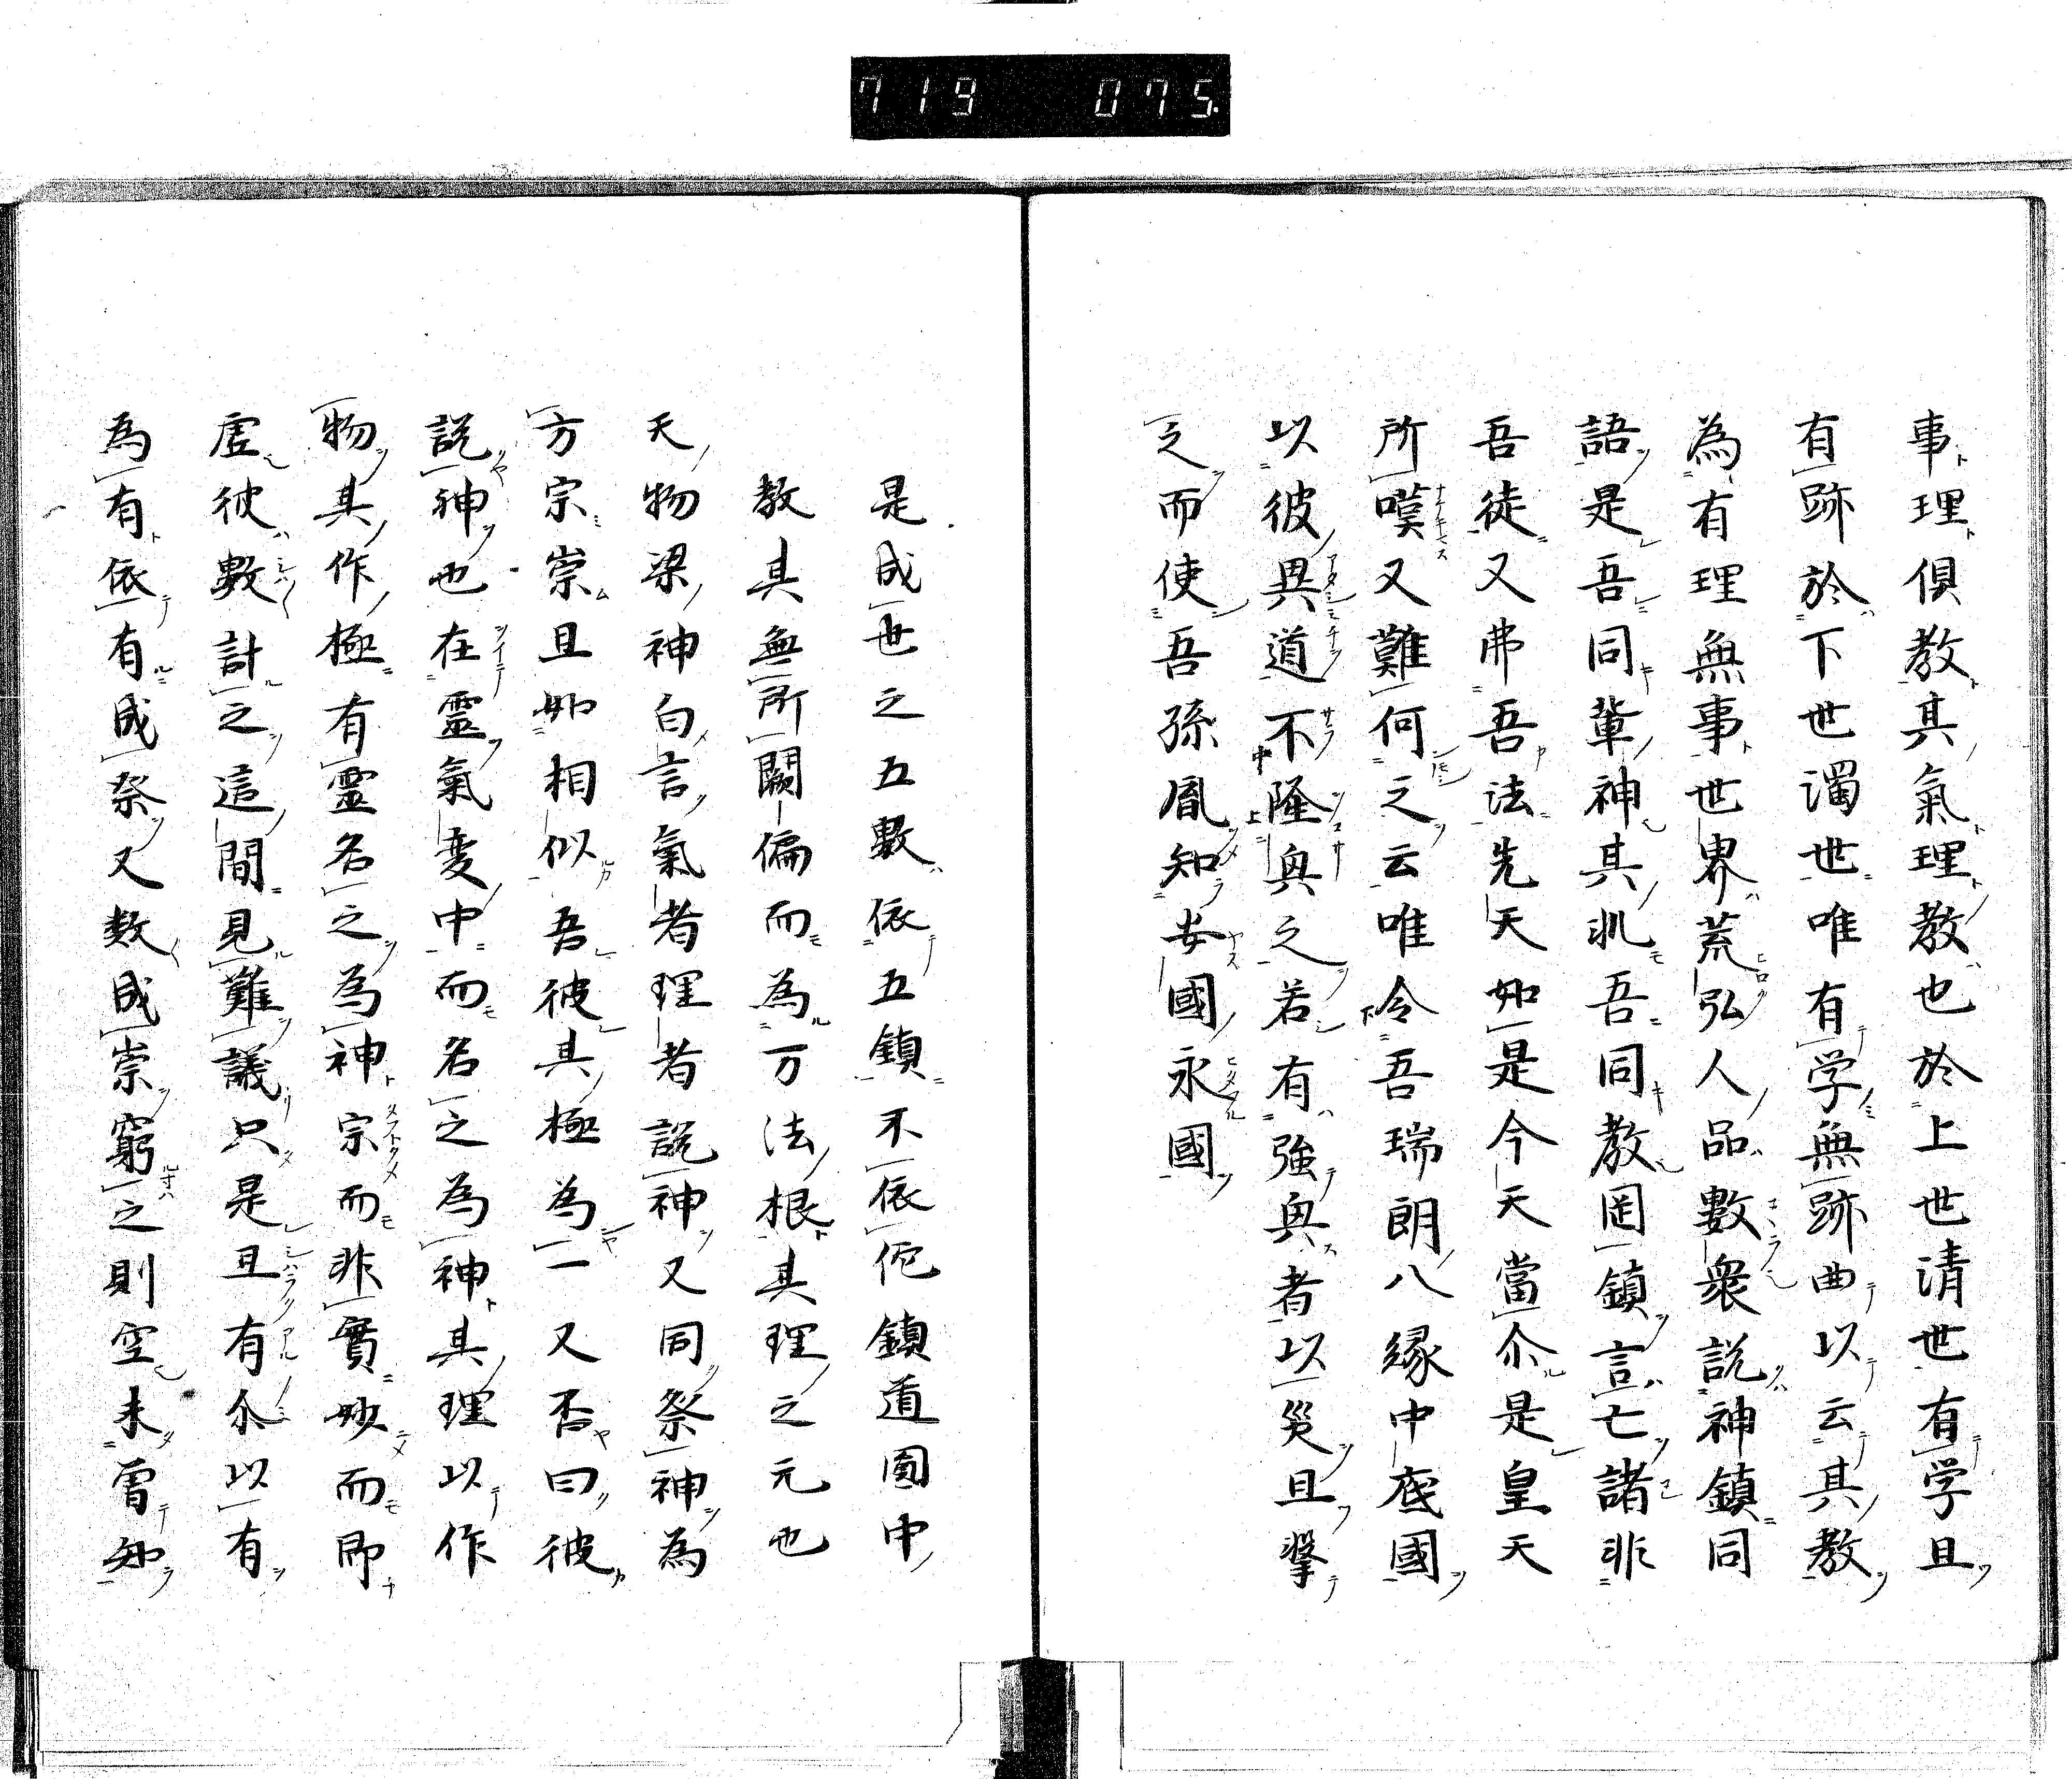 719 075
事理倶教其氣理教也於上世清世有学且
有跡於下世濁世唯有学無跡曲以云其教
為有理無事世界荒弘人品數衆説神鎮同
語是吾同輩神其非吾同教罔鎮言亡諸非
吾徒又弗吾法先天如是今天當尒是皇天
所嘆又難何之云唯令吾瑞朗八縁中底國
以彼異道不隆與之若有強與者以災且撃
之而使吾孫胤知安國永國
是成世之五數依五鎮不依佗鎮道圓中
教其無所闕偏而為万法根其理之元也
天物梁神白言氣者理者説神又同祭神為
方宗崇且如相似吾彼其極為一又否曰彼
説神也在靈氣変中而名之為神其理以作
物其作極有靈名之為神宗而非實妙而即
虚彼數計之這間見難議只是且有尒以有
為有依有成祭又数成崇窮之則空未曽知